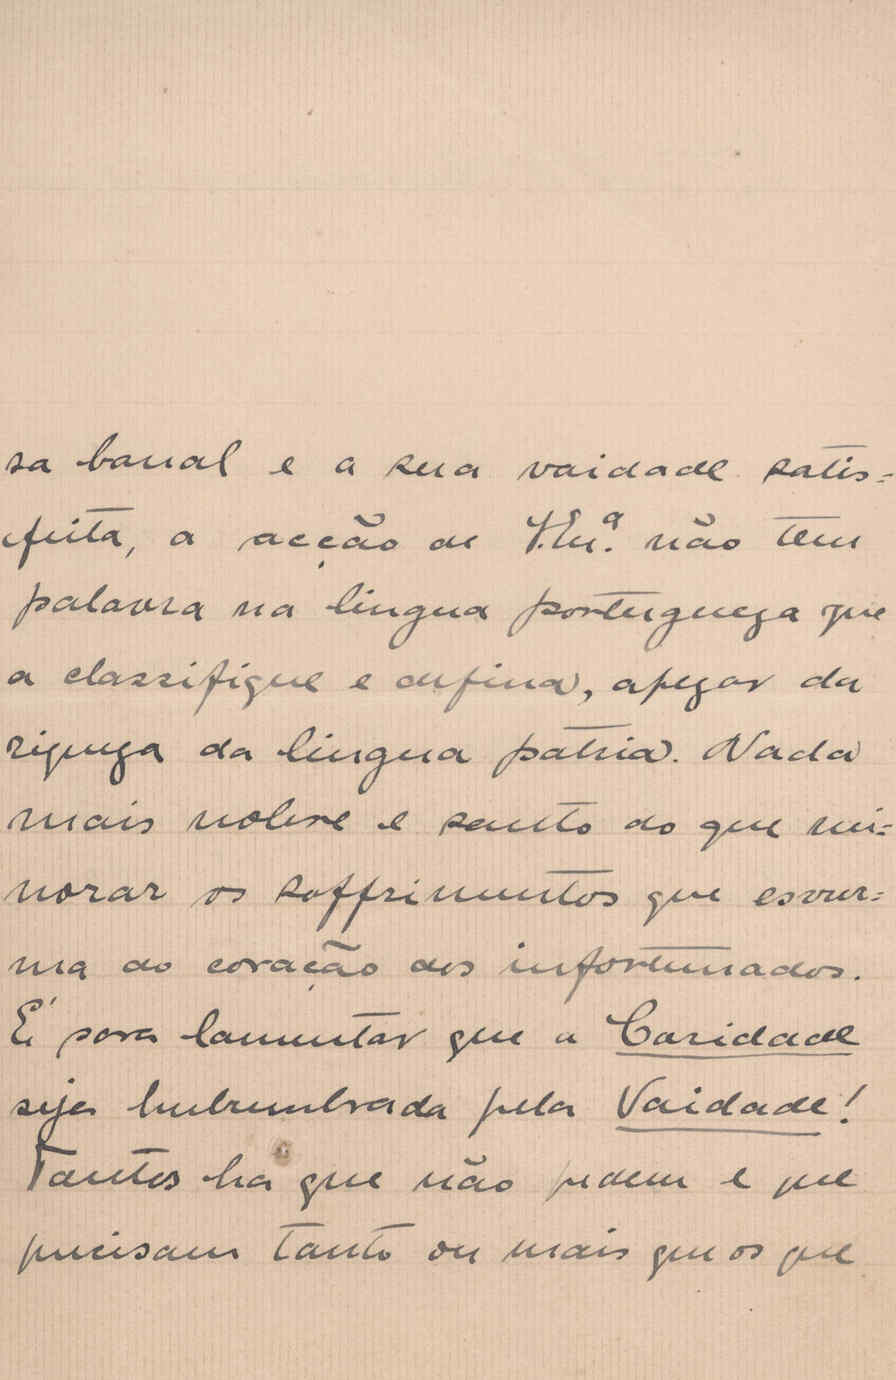 sa banal e a sua vaidade satis=
feita, a acção de V. Ex.ª não tem
palavra na lingua portugueza que
a classifique e defina, apezar da
riqueza da lingua patria. Nada
mais nobre e santo do que mi=
norar os soffrimentos que esvur=
ma do coração dos infortunados.
É para lamentar que a Caridade
seja lembrada pela Vaidade!
Tantos ha que não pedem e que
precisam tanto ou mais que os que